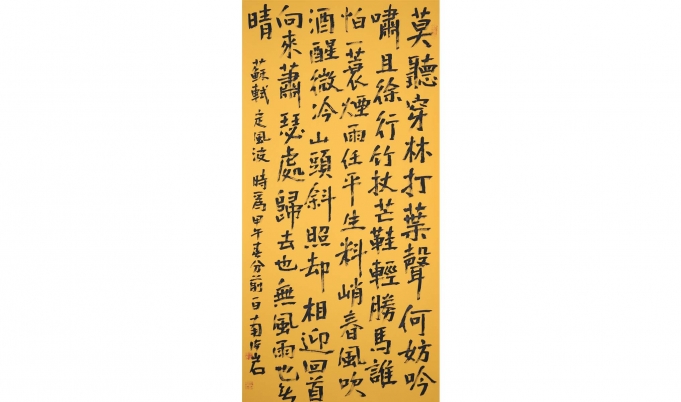 莫聽穿林打葉聲何妨吟
嘯且徐行竹杖芒鞋輕勝馬誰
怕一蓑煙雨任平生料峭春風吹
酒醒微冷山頭斜照却相迎回首
向來蕭瑟處歸去也無風雨也無
晴 蘇軾 定風波 時爲甲午春分前一日